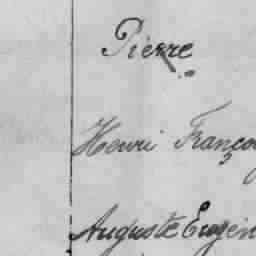 Pierre
Henri Franço
Auguste Eugèn